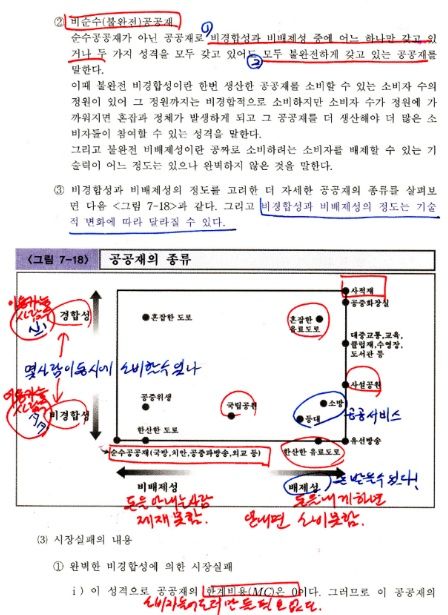 ② 비순수(불완전)공공재
순수공공재가 아닌 공공재로 ①비경합성과 비배제성 중에 어느 하나만 갖고 있
거나 두 가지 성격을 모두 갖고 있어도 ②모두 불완전하게 갖고 있는 공공재를
말한다.
이때 불완전 비경합성이란 한번 생산한 공공재를 소비할 수 있는 소비자 수의
정원이 있어 그 정원까지는 비경합적으로 소비하지만 소비자 수가 정원에 가
까워지면 혼잡과 정체가 발생하게 되고 그 공공재를 더 생산해야 더 많은 소
비자들이 참여할 수 있는 성격을 말한다.
그리고 불완전 비배제성이란 공짜로 소비하려는 소비자를 배제할 수 있는 기
술력이 어느 정도는 있으나 완벽하지 않은 것을 말한다.
③ 비경합성과 비배제성의 정도를 고려한 더 자세한 공공재의 종류를 살펴보
면 다음 <그림 7-18>과 같다. 그리고 비경합성과 비배제성의 정도는 기술
적 변화에 따라 달라질 수 있다.
<그림 7-18> 공공재의 종류
사적재
이용가능
경합성
혼잡한 도로
혼잡한
유료도로
공중화장실
대중교통,교육,
클럽재,수영장,
도서관 등
몇사람이 동시에 소비할수 있나
사설공원
이용가능
비경합성
공중위생
국립공원
소방
등대
공공서비스
한산한 도로
유선방송
순수공공재(국방,치안,공중파방송,외교 등)
한산한 유료도로
비배제성
배제성
돈 받을수 있다!
돈을 안내는 사람
제재 못함.
돈을 내게 하면
안내면 소비 못함.
(3) 시장실패의 내용
① 완벽한 비경합성에 의한 시장실패
i) 이 성격으로 공공재의 한계비용(MC)은 0이다. 그러므로 이 공공재의